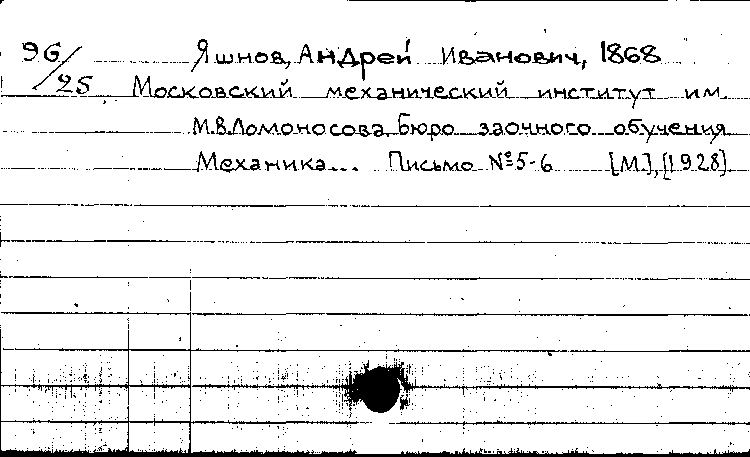 96/25 Яшнов, Андрей Иванович, 1868
Московский механический институт им.
М.В.Ломоносова. Бюро заочного обучения
Механика... Письмо №5-6 [М.], [1928]